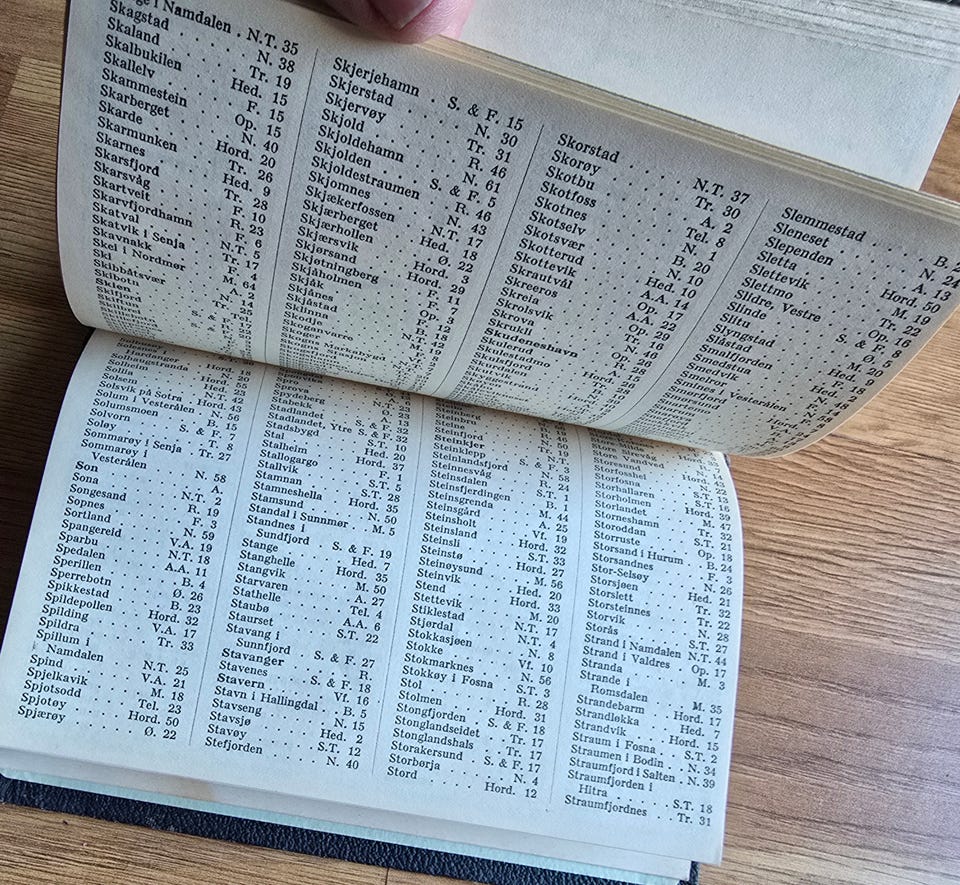 ge i Namdalen . N.T. 35
Skagstad N. 38
Skaland Tr. 19
Skalbukilen Hed. 15
Skallelv F. 15
Skammestein Op. 15
Skarberget N. 40
Skarde Hord. 20
Skarmunken Tr. 26
Skarnes Hed. 9
Skarsfjord Tr. 28
Skarsvåg F. 10
Skartveit R. 23
Skarvfjordhamn F. 6
Skatval N.T. 5
Skatvik i Senja Tr. 17
Skavnakk F. 4
Skei i Nordmør M. 64
Ski A. 2
Skibbåtsvær N. 14
Skibotn Tr. 25
Skien Tel.
Skifjord
Skjerjehamn S. & F. 15
Skjerstad N. 30
Skjervøy Tr. 31
Skjold R. 46
Skjoldehamn N. 61
Skjolden S. & F. 5
Skjoldestraumen R. 46
Skjomnes N. 43
Skjækerfossen N.T. 17
Skjærberget Hed. 18
Skjærhollen Ø. 22
Skjærsvik Hord. 3
Skjørsand Hord. 29
Skjøtningberg F. 11
Skjåholmen F. 7
Skjåk Op. 3
Skjånes F. 12
Skjåstad B. 18
Sklinna N.T. 12
Skodje M. 19
Skoganvarre
Skorstad N.T. 37
Skorøy Tr. 30
Skotbu A. 2
Skotfoss Tel. 8
Skotnes N. 1
Skotselv B. 20
Skotsvær N. 10
Skotterud Hed. 10
Skottevik A.A. 14
Skrautvål Op. 17
Skreeros A.A. 22
Skreia Op. 29
Skrolsvik Tr. 16
Skrova N. 46
Skrukli Op.
Skudeneshavn R.
Skulerud
Skulestadmo
Skulsfjord
Skurdalen
Slemmestad B. 2
Sleneset N. 24
Slependen A. 13
Sletta Hord. 50
Slettevik M. 19
Slettmo Tr. 22
Slidre, Vestre Op. 16
Slinde S. & F. 8
Slitu Ø. 5
Slyngstad M. 20
Slåstad Hed. 9
Smalfjorden F. 18
Smedstua Hed. 2
Smervik
Smelror
Smines i Vesterålen
Solheim
Solsem N.T. 42
Solsvik på Sotra Hord. 43
Solum i Vesterålen N. 56
Solumsmoen
Solvorn S. & F. 7
Soløy T. 8
Sommarøy i Senja Tr. 27
Sommarøy i
Vesterålen N. 58
Son A.
Sona N.T. 2
Songesand R. 19
Sopnes F. 3
Sortland N. 59
Spangereid V.A. 19
Sparbu N.T. 18
Spedalen A.A. 11
Sperillen B. 4
Sperrebotn Ø. 26
Spikkestad B. 23
Spildepollen Hord. 32
Spilding V.A. 17
Spildra Tr. 33
Spillum i
Namdalen N.T. 25
Spind V.A. 21
Spjelkavik M. 18
Spjotsodd Tel. 23
Spjotøy Hord. 50
Spjærøy Ø. 22
Sprova
Spydeberg
Stabekk A. 13
Stadlandet S. & F. 32
Stadlandet, Ytre S. & F. 32
Stadsbygd S.T. 10
Stai Hed.
Stalheim Hord. 37
Stallogargo F. 1
Stamnan S.T. 28
Stamneshella Hord. 35
Stamsund N. 50
Standal i Sunnmør M. 5
Standnes i
Sundfjord S. & F. 19
Stange Hed. 7
Stanghelle Hord. 35
Stangvik M. 50
Starvaren A. 27
Stathelle Tel. 4
Staubø A.A. 6
Staurset S.T. 22
Stavang i
Sunnfjord S. & F. 27
Stavanger R.
Stavenes S. & F. 18
Stavern Vf. 16
Stavn i Hallingdal B. 5
Stavseng N. 15
Stavsjø Hed. 2
Stavøy S.T. 12
Stefjorden N. 40
Steinberg
Steinbru
Steine
Steinfjord
Steinkjer N.T.
Steinklepp S. & F. 3
Steinlandsfjord N. 58
Steinnesvåg R. 24
Steinsdalen S.T. 1
Steinsfjerdingen B. 1
Steinsgrenda M. 44
Steinsgård A. 25
Steinsholt Vf. 19
Steinsland Hord. 32
Steinsli S.T. 33
Steinstø Hord. 27
Steinøysund M. 56
Steinvik Hed. 20
Stend Hord. 33
Stettevik M. 20
Stiklestad N.T. 17
Stjørdal N.T. 4
Stokkasjøen N. 8
Stokke Vf. 10
Stokmarknes N. 56
Stokkøy i Fosna S.T. 3
Stol R. 28
Stolmen Hord. 31
Stongfjorden S. & F. 18
Stonglandseidet Tr. 17
Stonglandshals Tr. 17
Storakersund S. & F. 17
Storbørja N. 4
Stord Hord. 12
Storesund Hord. 43
Storfosshei N. 22
Storfosna S.T. 13
Storhallaren S.T. 16
Storholmen Hord. 39
Storlandet M. 47
Storneshamn Tr. 32
Storoddan S.T. 21
Storruste Op. 18
Storsand i Hurum B. 24
Storsandnes F. 3
Stor-Selsøy N. 26
Storsjøen Hed. 21
Storslett Tr. 32
Storsteinnes Tr. 22
Storvik N. 28
Storås S.T. 27
Strand i Namdalen N.T. 44
Strand i Valdres Op. 17
Stranda M. 3
Strande i
Romsdalen M. 35
Strandebarm Hord. 17
Strandløkka Hed. 7
Strandvik Hord. 15
Straum i Fosna S.T. 2
Straumen i Bodin N. 34
Straumfjord i Salten N. 39
Straumfjorden i
Hitra S.T. 18
Straumfjordnes Tr. 31